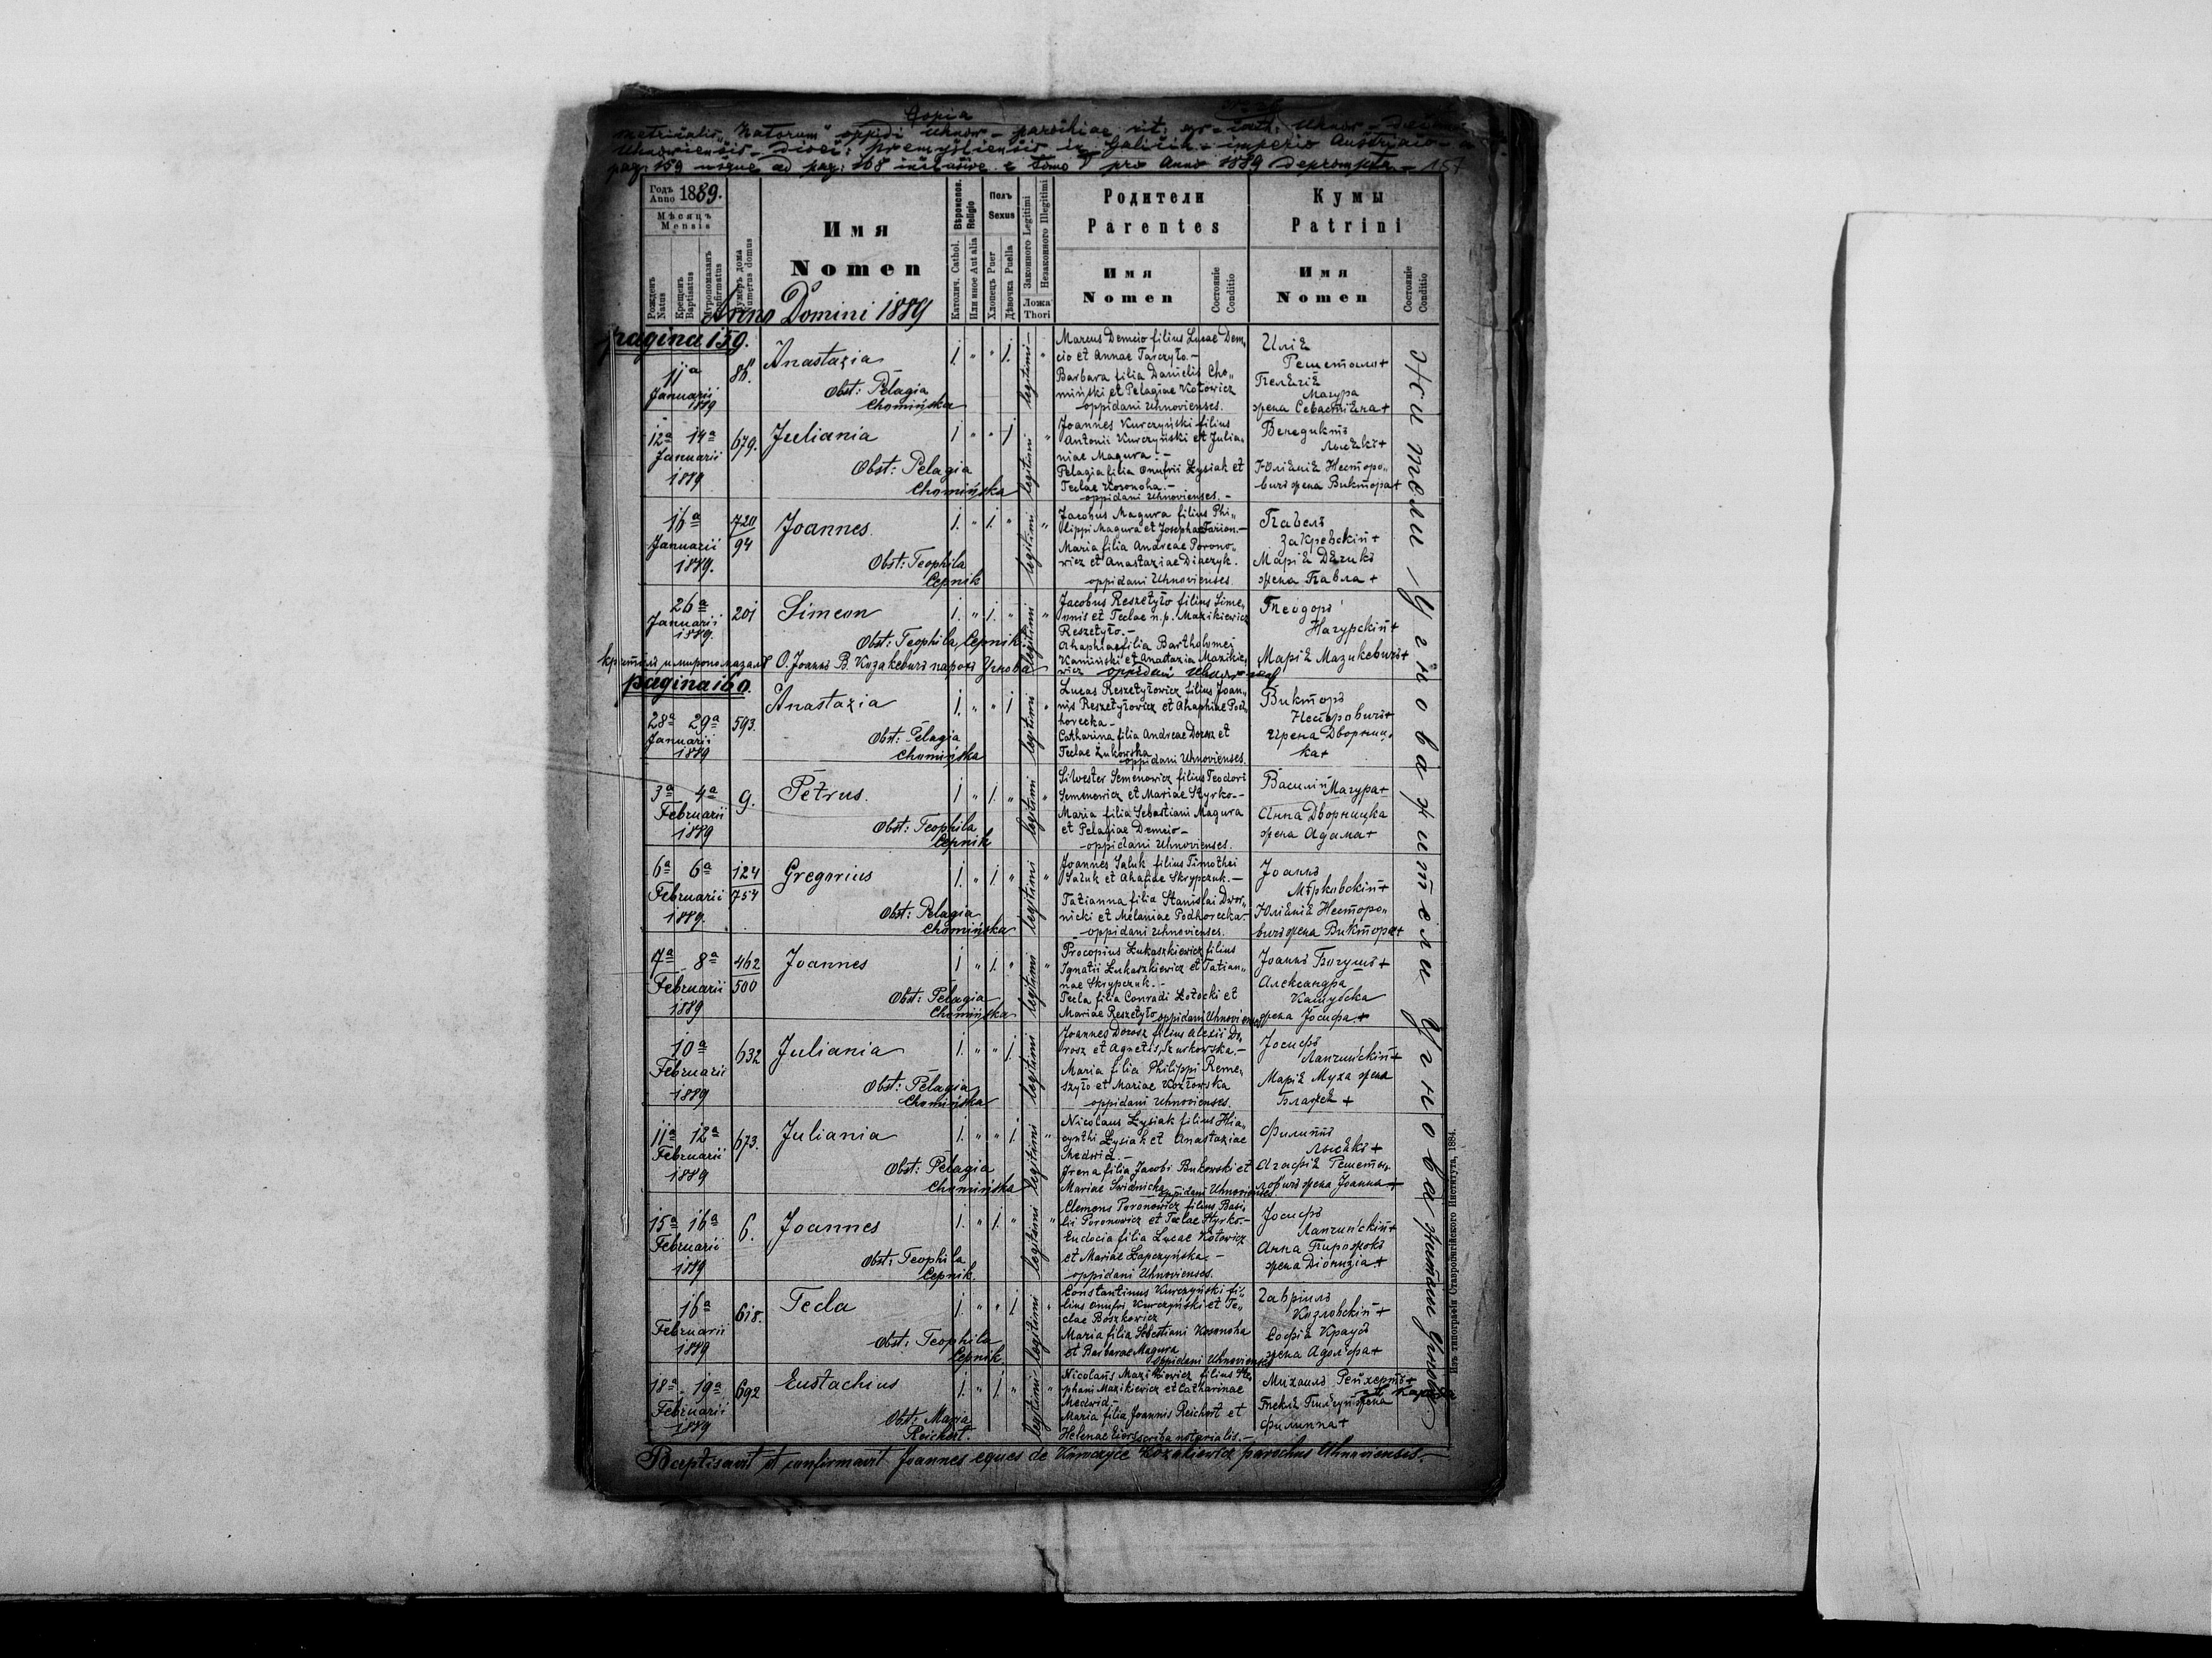 Copia
matricalis "Natorum" oppidi Uhnow - parochiae rit: gr-cath: Uhnow -
Uhnoviensis - Dioec: Premysliensis in Galicih - imperio Austryaco - a
pag: 159 usque ad pag: 168 inclusive e tomo V pro Anno 1889 deprompta - 157
Годъ Anno 1889.
Мѣсяцъ
Mensis
Рожденъ Natus
Крещенъ Baptisatus
Мѵропомазанъ Confirmatus
Нумеръ дома Numerus domus
Имя
Nomen
Anno Domini 1889
Вѣроиспов. Religio
Католич. Cathol.
Или иное Aut alia
Полъ
Sexus
Хлопецъ Puer
Дѣвочка Puella
Законного Legitimi
Незаконного Illegitimi
Ложа
Thori
Родители
Parentes
Имя
Nomen
Состояніе Conditio
Кумы
Patrini
Имя
Nomen
Состояніе Conditio
pagina 159.
11a
Januarii
1889
86.
Anastazia
Obst: Pelagia
Chomińska
1. " " 1. legitimi "
Marcus Demcio filius Lucae Dem„
cio et Annae Tarczyło.-
Barbara filia Danielis Cho„
miński et Pelagiae Kotowicz
oppidani Uhnovienses.
Иліѣ
Решетыло+
Пелѣгіѣ
Магура
жена Севастіѣна+
12a 14a
Januarii
1889
679.
Juliania
Obst: Pelagia
Chomińska
1 " " 1 legitimi "
Joannes Kurczyński filius
Antonii Kurczyński et Julia„
niae Magura.-
Pelagia filia Onufrii Łysiak et
Teclae Kosonoha.-
oppidani Uhnovienses.-
Венедиктъ
Лысѣкъ+
Юліѣніѣ Несторо„
вичъ жена Виктора+
16a
Januarii
1889.
720
94
Joannes.
Obst: Teophila
Cepnik
1. " 1. " legitimi "
Jacobus Magura filius Phi„
lippi Magura et Josephae Farion.-
Maria filia Andreae Porono„
wicz et Anastaziae Diaczyk.
oppidani Uhnovienses.
Павелъ
Закревскій+
Маріѣ Дѣчикъ
жена Павла+
26a
Januarii
1889.
201
Simeon
Obst: Teophila Cepnik
1. " 1. " legitimi "
Jacobus Reszetyło filius Sime„
onis et Teclae n.p. Mazikiewicz
Reszetyło.-
Ahaphia filia Bartholomei
Kamiński et Anastazia Mazikie„
wicz oppidani
Теодоръ
Нагурскій+
Маріѣ Мазикевичъ+
крестилъ и миропомазалъ О. Joannъ В. Козакевичъ парохъ Угнова
pagina 160.
28a 29a
Januarii
1889
593.
Anastazia
Obst: Pelagia
Chomińska
1. " " 1 legitimi "
Lucas Reszetyłowicz filius Joan„
nis Reszetyłowicz et Ahaphiae Pod„
horecka-
Catharina filia Andreae Dorosz et
Teclae Żukowska
oppidani Uhnovienses.
Викторъ
Несторовичъ+
Ирена Дворниц„
ка+
3a 4a
Februarii
1889
9.
Petrus.
Obst: Teophila
Cepnik
1 " 1. " legitimi "
Silvester Semenowicz filius Teodori
Semenowicz et Mariae Styrko.-
Maria filia Sebastiani Magura
et Pelagiae Demcio-
oppidani Uhnovienses.
Василій Магура+
Анна Дворницка
жена Адама+
6a 6a
Februarii
1889.
124
754
Gregorius
Obst: Pelagia
Chomińska
1. " 1. " legitimi "
Joannes Saluk filius Timothei
Saluk et Ahafiae Skrypczuk.-
Tatianna filia Stanislai Dwor„
nicki et Melaniae Podhorecka.-
oppidani Uhnovienses.
Joаннъ
Мѣрковскій+
Юліѣніѣ Несторо„
вичъ жена Виктора+
7a 8a
Februarii
1889
462
500
Joannes
Obst: Pelagia
Chomińska
1 " 1. " legitimi "
Procopius Łukaszkiewicz filius
Ignatii Łukaszkiewicz et Tatian„
nae Skrypczuk.-
Tecla filia Conradi Łotocki et
Mariae Reszetyło oppidani Uhnovienses
Joаннъ Богушъ+
Александра
Кашубска
жена Jосифа.+
10a
Februarii
1889
632
Juliania
Obst: Pelagia
Chomińska
1. " " 1. legitimi
Joannes Dorosz filius Alexii Do„
rosz et Agnetis Szurkowska.-
Maria filia Philippi Reme„
szyło et Mariae Kozłowska
oppidani Uhnovienses.
Jосифъ
Лапчинскій+
Маріѣ Муха жена
Блажеѣ +
11a 12a
Februarii
1889
673.
Juliania
Obst: Pelagia
Chomińska
1. " " 1. legitimi "
Nicolaus Łysiak filius Hia„
cynthi Łysiak et Anastaziae
Medwid.-
Irena filia Jacobi Bukowski et
Mariae Swidnicka
oppidani Uhnovienses
Филиппъ
Лысѣкъ+
Агафіѣ Решеты„
ловичъ жена Joанна+
15a 16a
Februarii
1889
6.
Joannes
Obst: Teophila
Cepnik.
1. " 1. " legitimi "
Clemens Poronowicz filius Basi„
lii Poronowicz et Teclae Styrko.-
Eudocia filia Lucae Kotowicz
et Mariae Łapczyńska.-
oppidani Uhnovienses.
Jосифъ
Лапчинскій+
Анна Пирожокъ
жена Діонизія.+
16a
Februarii
1889
618.
Tecla
Obst: Teophila
Cepnik
1. " " 1. legitimi "
Constantinus Kurczyński fi„
lius Onufri Kurczyński et Te„
clae Boszkowicz
Maria filia Sebastiani Kosonoha
et Barbarae Magura
oppidani Uhnovienses
Гавріилъ
Козловскій+
Софіѣ Краусъ
жена Адольфа+
18a 19a
Februarii
1889
692
Eustachius
Obst: Maria
Reichert.
1. " 1. " legitimi "
Nicolaus Mazikiewicz filius Ste„
phani Mazikiewicz et Catharinae
Medwid.-
Maria filia Joannis Reichert et
Helenae scriba notarialis.-
Михаилъ Рейхертъ+
Теклѣ жена
Филиппа+
Жители Угнова жители Угнова жители Угнова
Baptisavit et confirmavit Joannes eques de Kurczyce Kozakiewicz parochus Uhnoviensis.-
Изъ типографіи Ставропигійского Института, 1884.